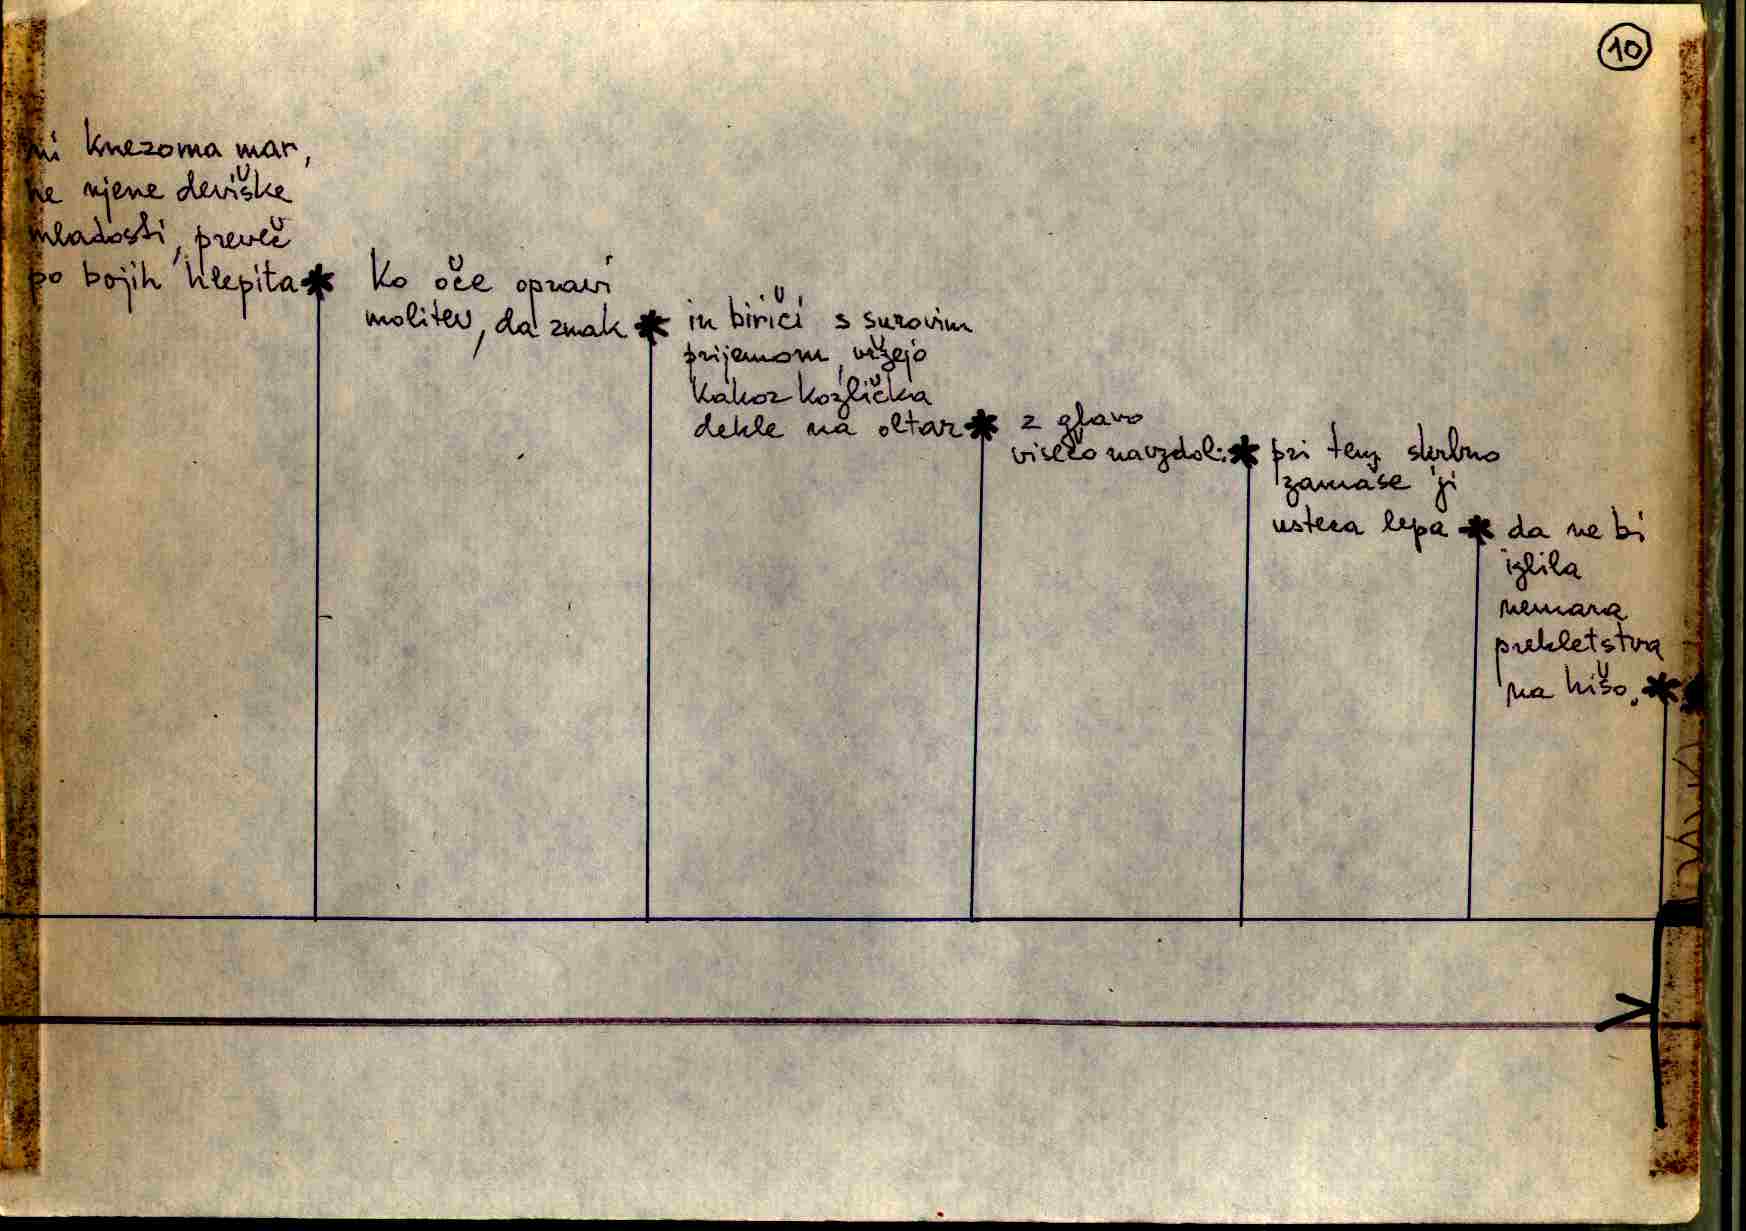 10
ni knezoma mar,
ne njene deviške
mladosti, preveč
po bojih hlepita *
Ko oče opravi
molitev, da znak *
in biriči s surovim
prijemom, vržejo
kakor kozlička
dekle na oltar *
z glavo
visečo navzdol: *
pri tem skrbno
zamaše ji
usteca lepa *
da ne bi
izlila
nemara
prekletstva
na hišo. *